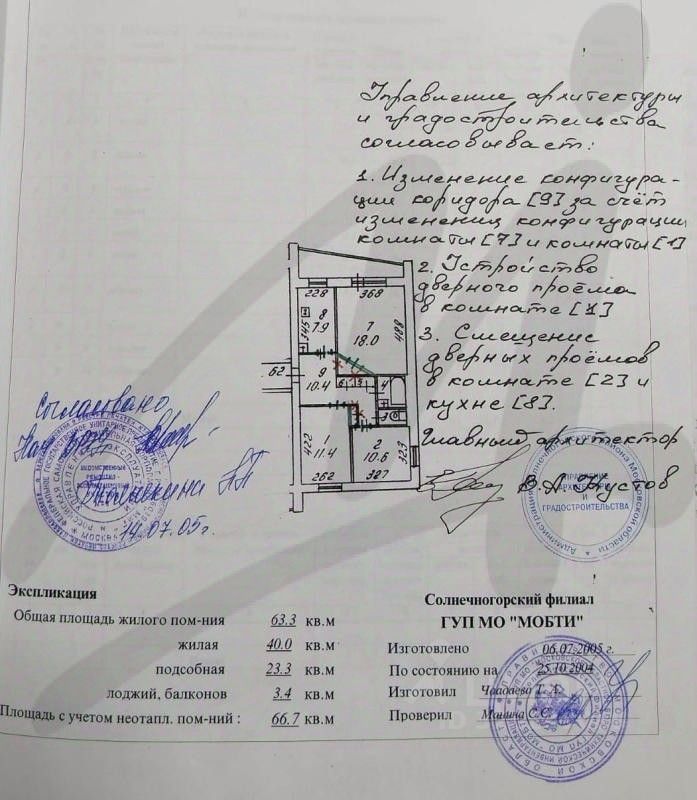 Управление архитектуры
и градостроительства
согласовывает:
1. Изменение конфигура-
ции коридора [9] за счёт
изменения конфигурации
комнаты [7] и комнаты [1]
2. Устройство
дверного проёма
в комнате [1]
3. Смещение
дверных проёмов
в комнате [2] и
кухне [8].
Главный архитектор
228 368
345 8 7.9 7 18.0 488
.62 9 10.4 6 5 4
3
422 1 11.4 2 10.6 323
262 327
Согласовано
14.07.05г.
УПРАВЛЕНИЕ
АРХИТЕКТУРЫ
И
ГРАДОСТРОИТЕЛЬСТВА
Экспликация
Общая площадь жилого пом-ния 63.3 кв.м
жилая 40.0 кв.м
подсобная 23.3 кв.м
лоджий, балконов 3.4 кв.м
Площадь с учетом неотапл. пом-ний : 66.7 кв.м
Солнечногорский филиал
ГУП МО "МОБТИ"
Изготовлено 06.07.2005 г.
По состоянию на 25.10.2004
Изготовил Чаадаева Т. А.
Проверил Минина С.С.